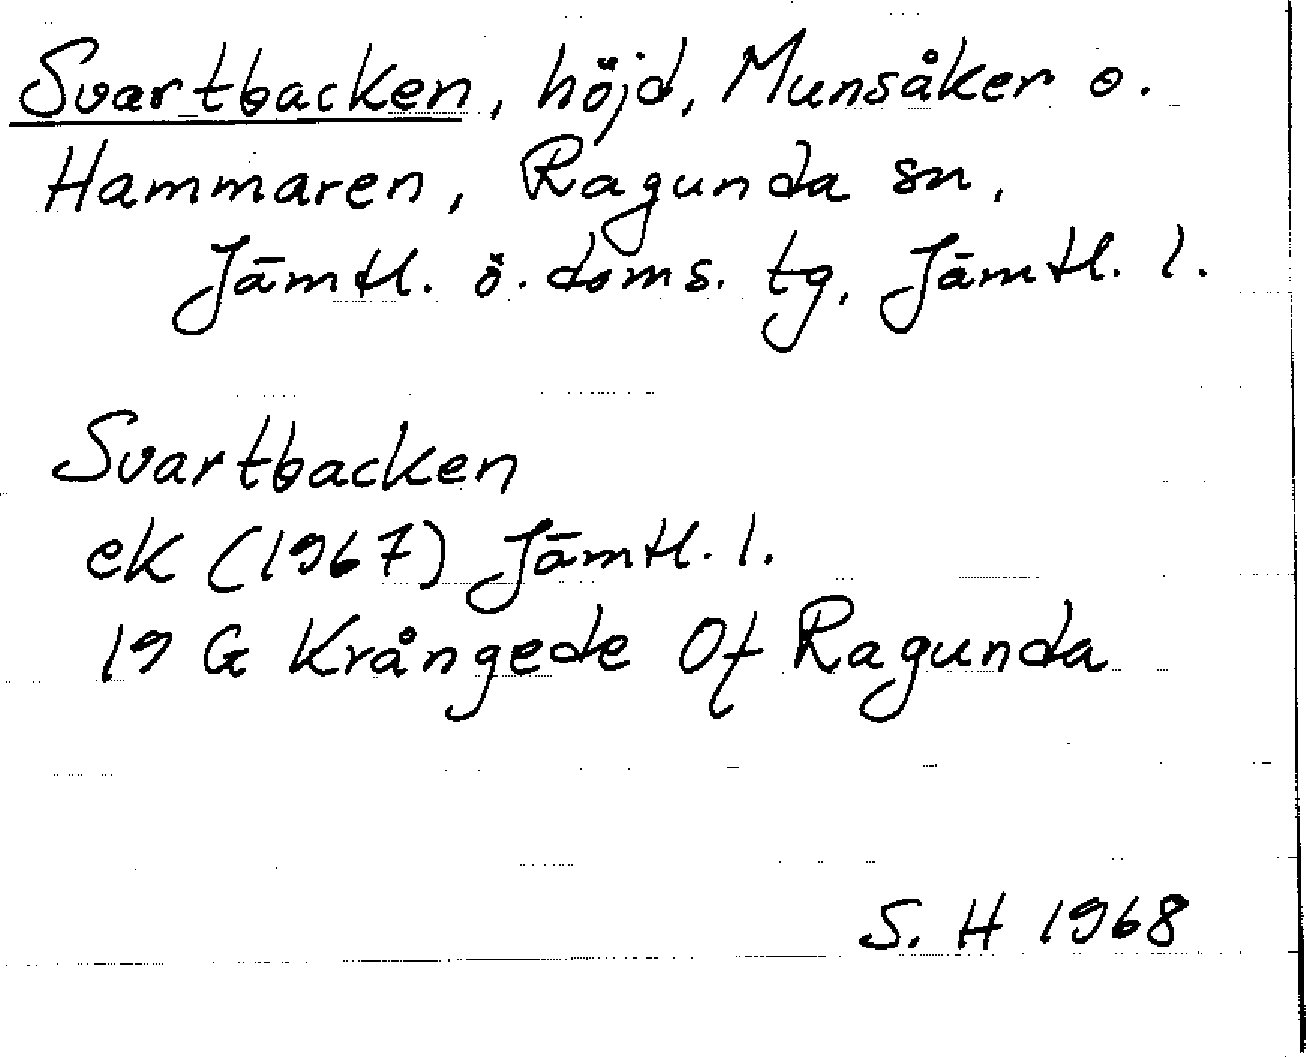 Svartbacken, höjd, Munsåker o.
Hammaren, Ragunda sn,
Jämtl. ö. doms. tg, Jämtl. l.
Svartbacken
ek (1967) Jämtl. l.
19 G Krångede Of Ragunda
S. H 1968